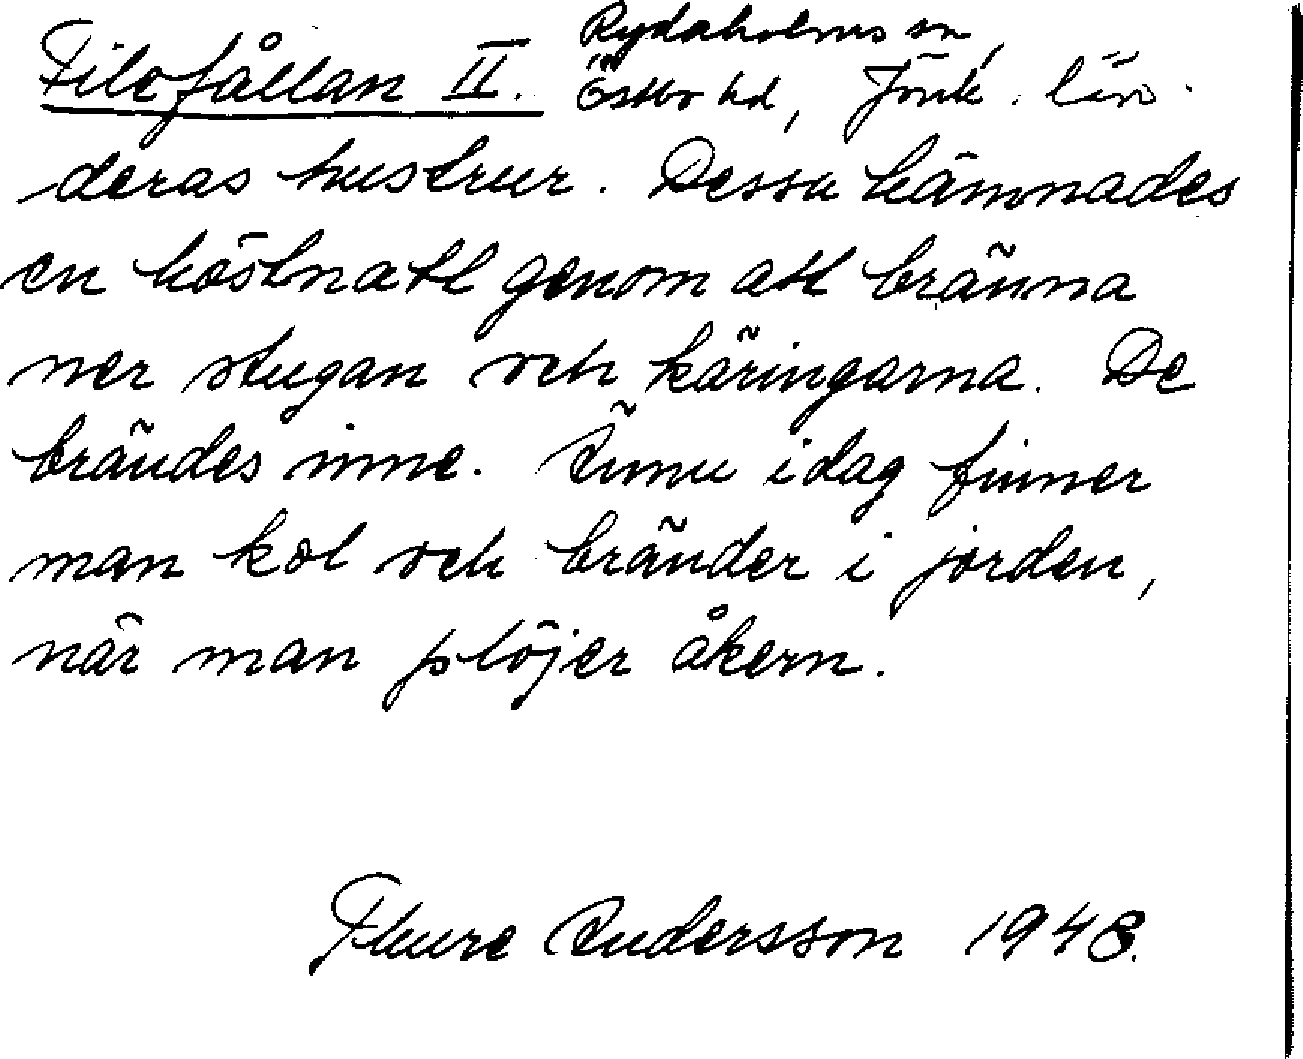 Filofållan II. Rydaholms sn,
Östbo hd, Jönk. län.
deras hustrur. Dessa hämnades
en höstnatt genom att bränna
ner stugan och käringarna. De
brändes inne. Ännu idag finner
man kol och bränder i jorden,
när man plöjer åkern.
Thure Andersson 1948.